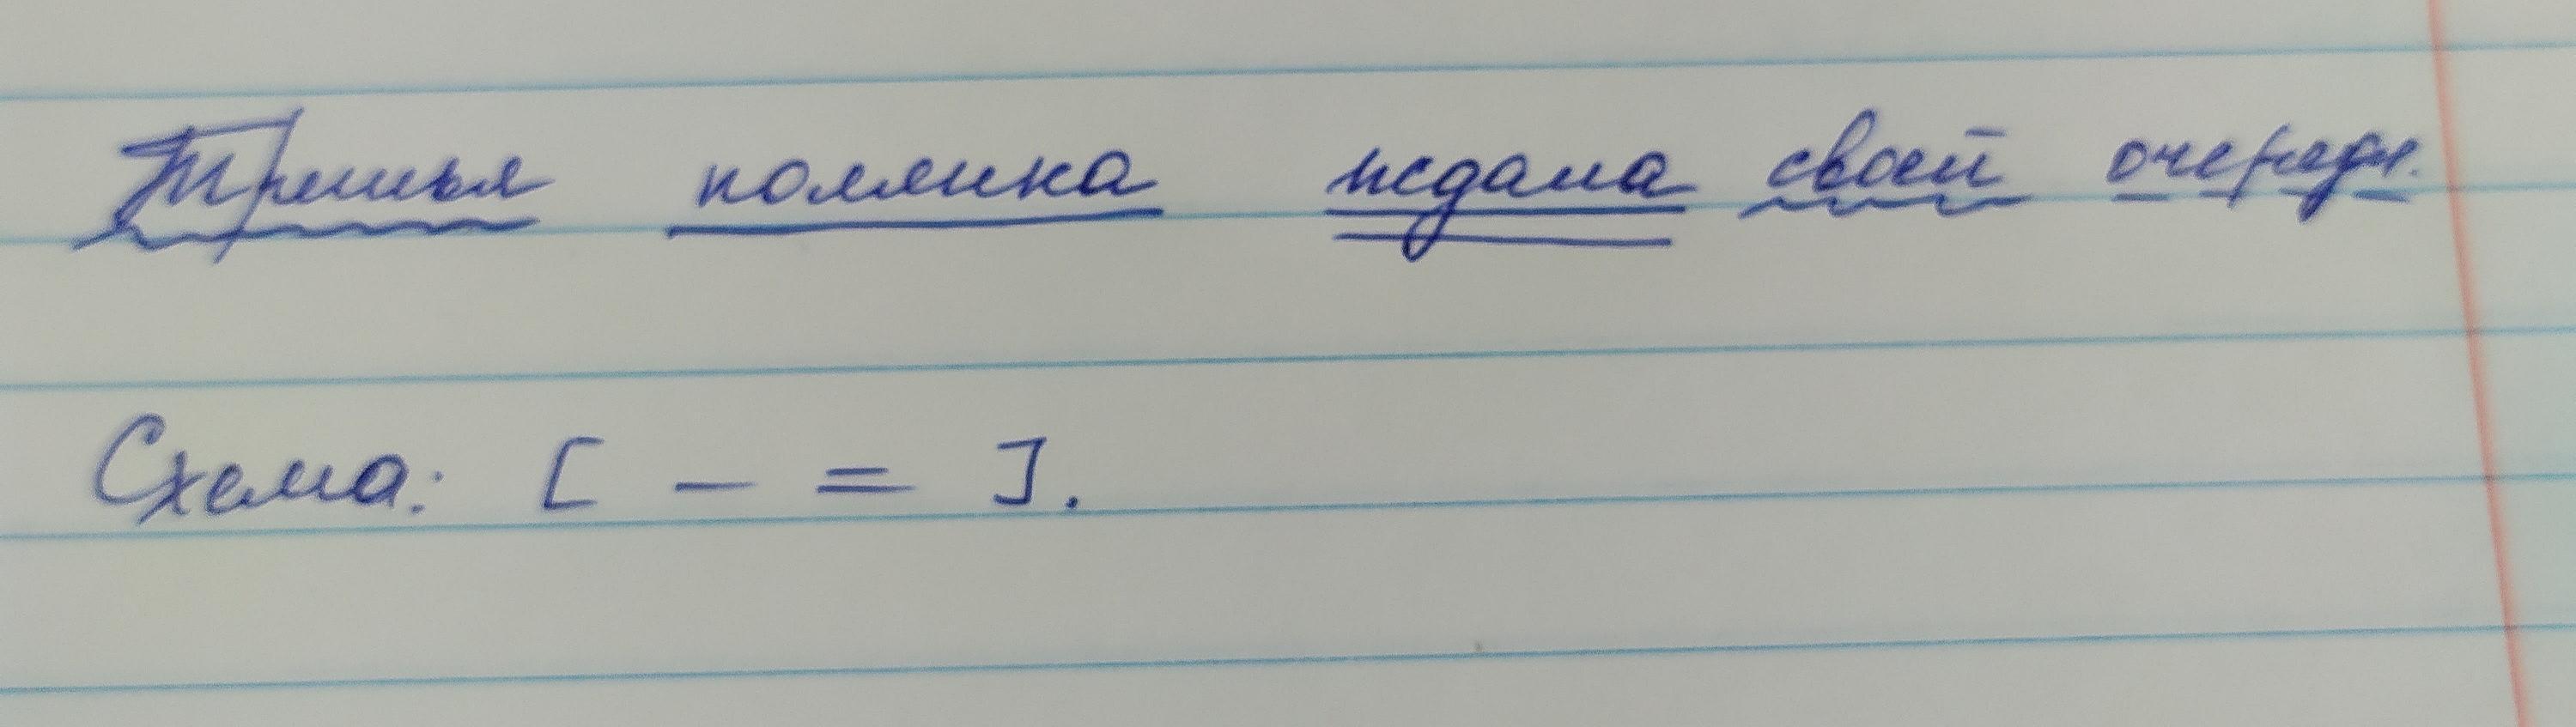 Третья полянка ждала своей очереди.
Схема: [ — = ].